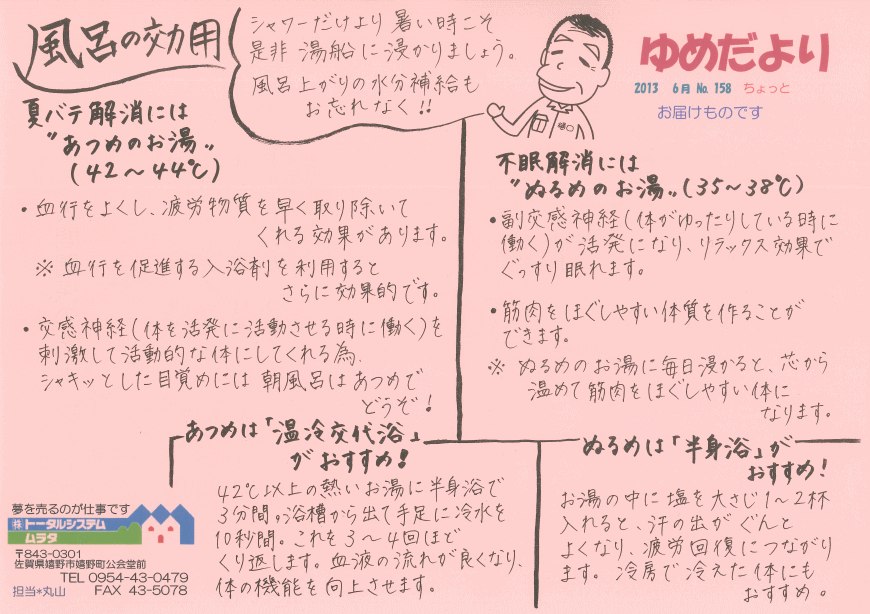 風呂の効用
シャワーだけより暑い時こそ
是非 湯船に浸かりましょう。
風呂上がりの水分補給も
お忘れなく!!
ゆめだより
2013 6月 No. 158 ちょっと
お届けものです
夏バテ解消には
〝あつめのお湯〟
(42～44℃)
・血行をよくし、疲労物質を早く取り除いて
くれる効果があります。
※ 血行を促進する入浴剤を利用すると
さらに効果的です。
・交感神経(体を活発に活動させる時に働く)を
刺激して活動的な体にしてくれる為、
シャキッとした目覚めには 朝風呂はあつめで
どうぞ!
不眠解消には
〝ぬるめのお湯〟(35～38℃)
・副交感神経(体がゆったりしている時に
働く)が活発になり、リラックス効果で
ぐっすり眠れます。
・筋肉をほぐしやすい体質を作ることが
できます。
※ ぬるめのお湯に毎日浸かると、芯から
温めて筋肉をほぐしやすい体に
なります。
あつめは「温冷交代浴」
がおすすめ!
42℃以上の熱いお湯に半身浴で
3分間。浴槽から出て手足に冷水を
10秒間。これを3～4回ほど
くり返します。血液の流れが良くなり、
体の機能を向上させます。
ぬるめは「半身浴」が
おすすめ!
お湯の中に塩を大さじ1～2杯
入れると、汗の出がぐんと
よくなり、疲労回復につながり
ます。冷房で冷えた体にも
おすすめ。
夢を売るのが仕事です
㈱トータルシステム
ムラタ
〒843-0301
佐賀県嬉野市嬉野町公会堂前
TEL 0954-43-0479
担当*丸山 FAX 43-5078